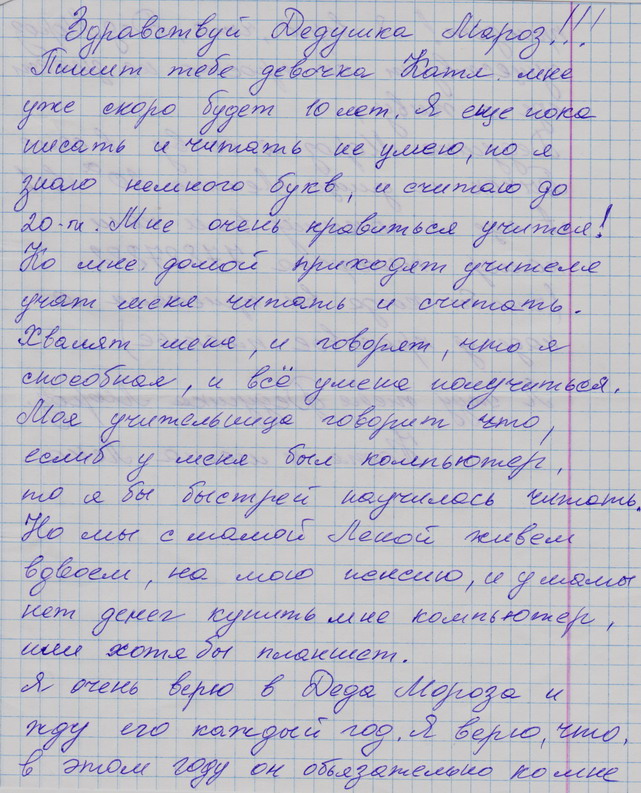 Здравствуй Дедушка Мароз!!!
Пишит тебе девочка Катя. мне
уже скоро будет 10 лет. Я еще пока
писать и читать не умею, но я
знаю немного букв, и считаю до
20-ти. Мне очень нравяться учится!
Ко мне домой приходят учителя
учат меня читать и считать.
Хвалят меня, и говорят, что я
способная, и всё умена получиться.
Моя учительница говорит что,
еслиб у меня был компьютер,
то я бы быстрей научилась читать.
Но мы с мамой Леной живем
вдвоем, на мою пенсию, и у мамы
нет денег купить мне компьютер,
или хотя бы планшет.
Я очень верю в Деда Мороза и
жду его каждый год. Я верю, что,
в этом году он обьязательно ко мне